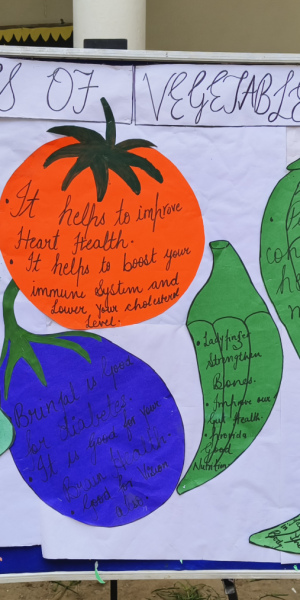 S OF VEGETABLE
• It helps to improve
Heart Health.
• It helps to boost your
immune System and
Lower Your cholesterol
Level.
• Ladyfinger
Strengthen
Bones.
• Improve our
Gut Health.
• Provide
Good
Nutrition
Brinjal is Good
for diabetes
• It is good for your
• Good for